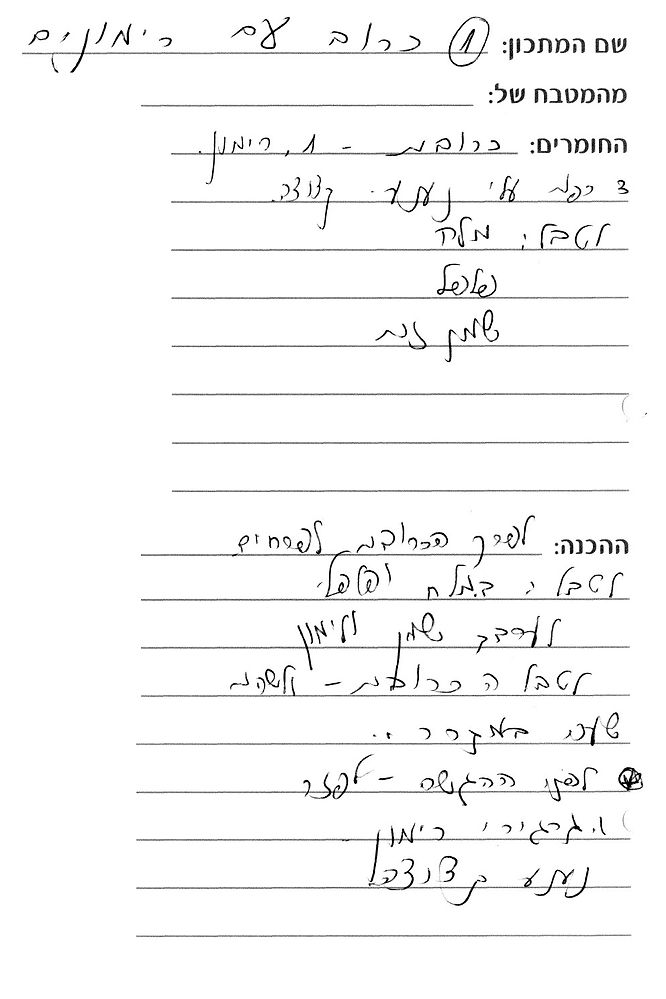 שם המתכון: (1) כרוב עם רימונים
מהמטבח של:
החומרים: כרובית - 1, רימון.
3 כפות עלי נענע קצוצה.
לטבל: מלח
פלפל
שמן זית
ההכנה: לפרק הכרובית לפרחים
לטבל: במלח ופלפל.
לערבב שמן ולימון
לטבל ה כרובית - ולשהות
שעה במקרר.
לפני ההגשה - לפזר
גרגירי רימון
נענע קצוצה.